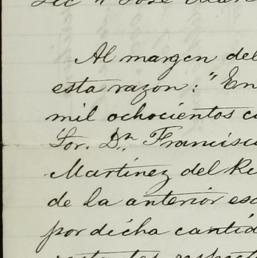 Al margen del
esta razon: "En
mil ochocientos c
Sor. Dn. Francisc
Martinez del R
de la anterior es
por dicha cantid